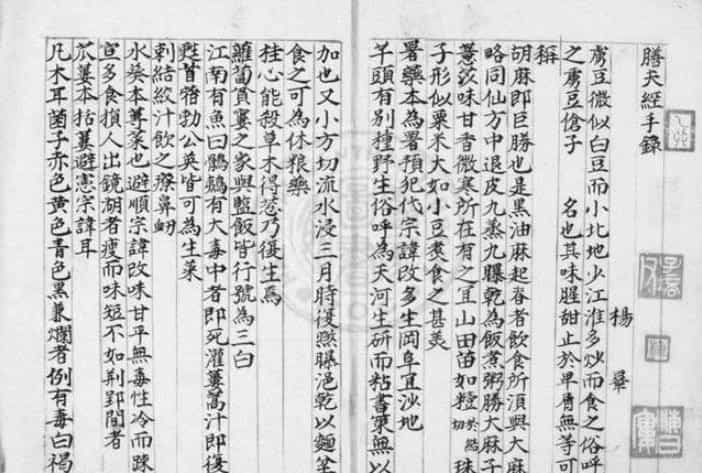 膳夫經手錄
楊 曅
虜豆微似白豆而小北地少江淮多炒而食之俗呼
之虜豆傖子 名也其味腥甜止於早屑無等可
稱
胡麻郎巨勝也是黑油麻起眷者飲食所須與大麻
略同仙方中退皮九烝九曝乾為飯煮粥勝大麻子
薏苡味甘香微寒所在有之宜山田苗如粒
子形似粟米大如小豆炙食之甚美
署藥本為署預犯代宗諱改多生岡阜宜沙地
芋頭有別種野生俗呼為天河生研而粘書策無以
加也又小方切流水浸三月時復燃曝浥乾以麵坌
食之可為休粮藥
桂心能殺草木得葱乃復生焉
蘿蔔貧寠之家與鹽飯皆行號為三白
江南有魚曰鶘鷬有大毒中者即死灌蔞蒿汁即復
甦苜蓿勃公英皆可為生菜
刺結絞汁飲之療鼻衂
水葵本蓴菜也避順宗諱改味甘平無毒性冷而踈
宣多食損人出鏡湖者瘦而味短不如荆郢間者
苽蔞本括蔞避憲宗諱耳
凡木耳菌子赤色黄色青色黑兼爛者例有毒白褐